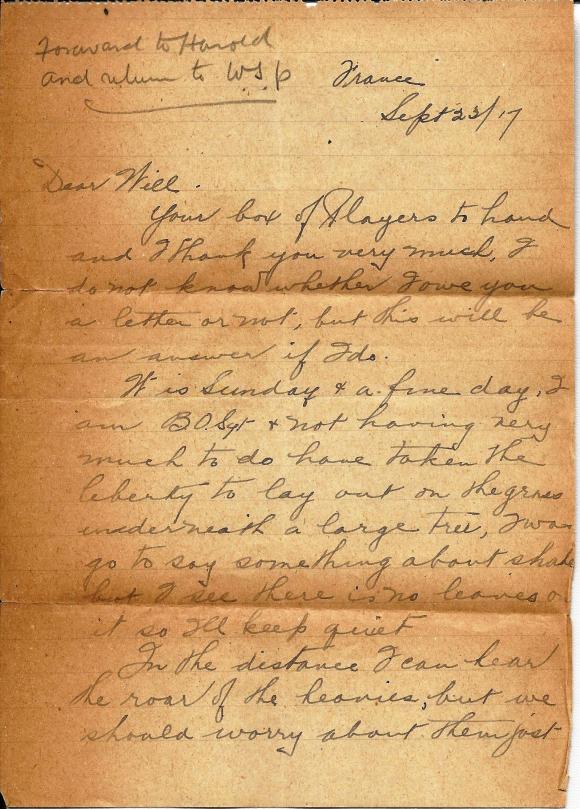 Forward to Harold
and return to WSP
France
Sept 23/17
Dear Will.
Your box of Players to hand
and I thank you very much, I
do not know whether I owe you
a letter or not, but this will be
an answer if I do.
It is Sunday & a fine day, I
am B.O. Sgt & not having very
much to do have taken the
liberty to lay out on the grass
underneath a large tree, I was
go to say something about shade
but I see there is no leaves on
it so I'll keep quiet
In the distance I can hear
the roar of the heavies, but we
should worry about them just